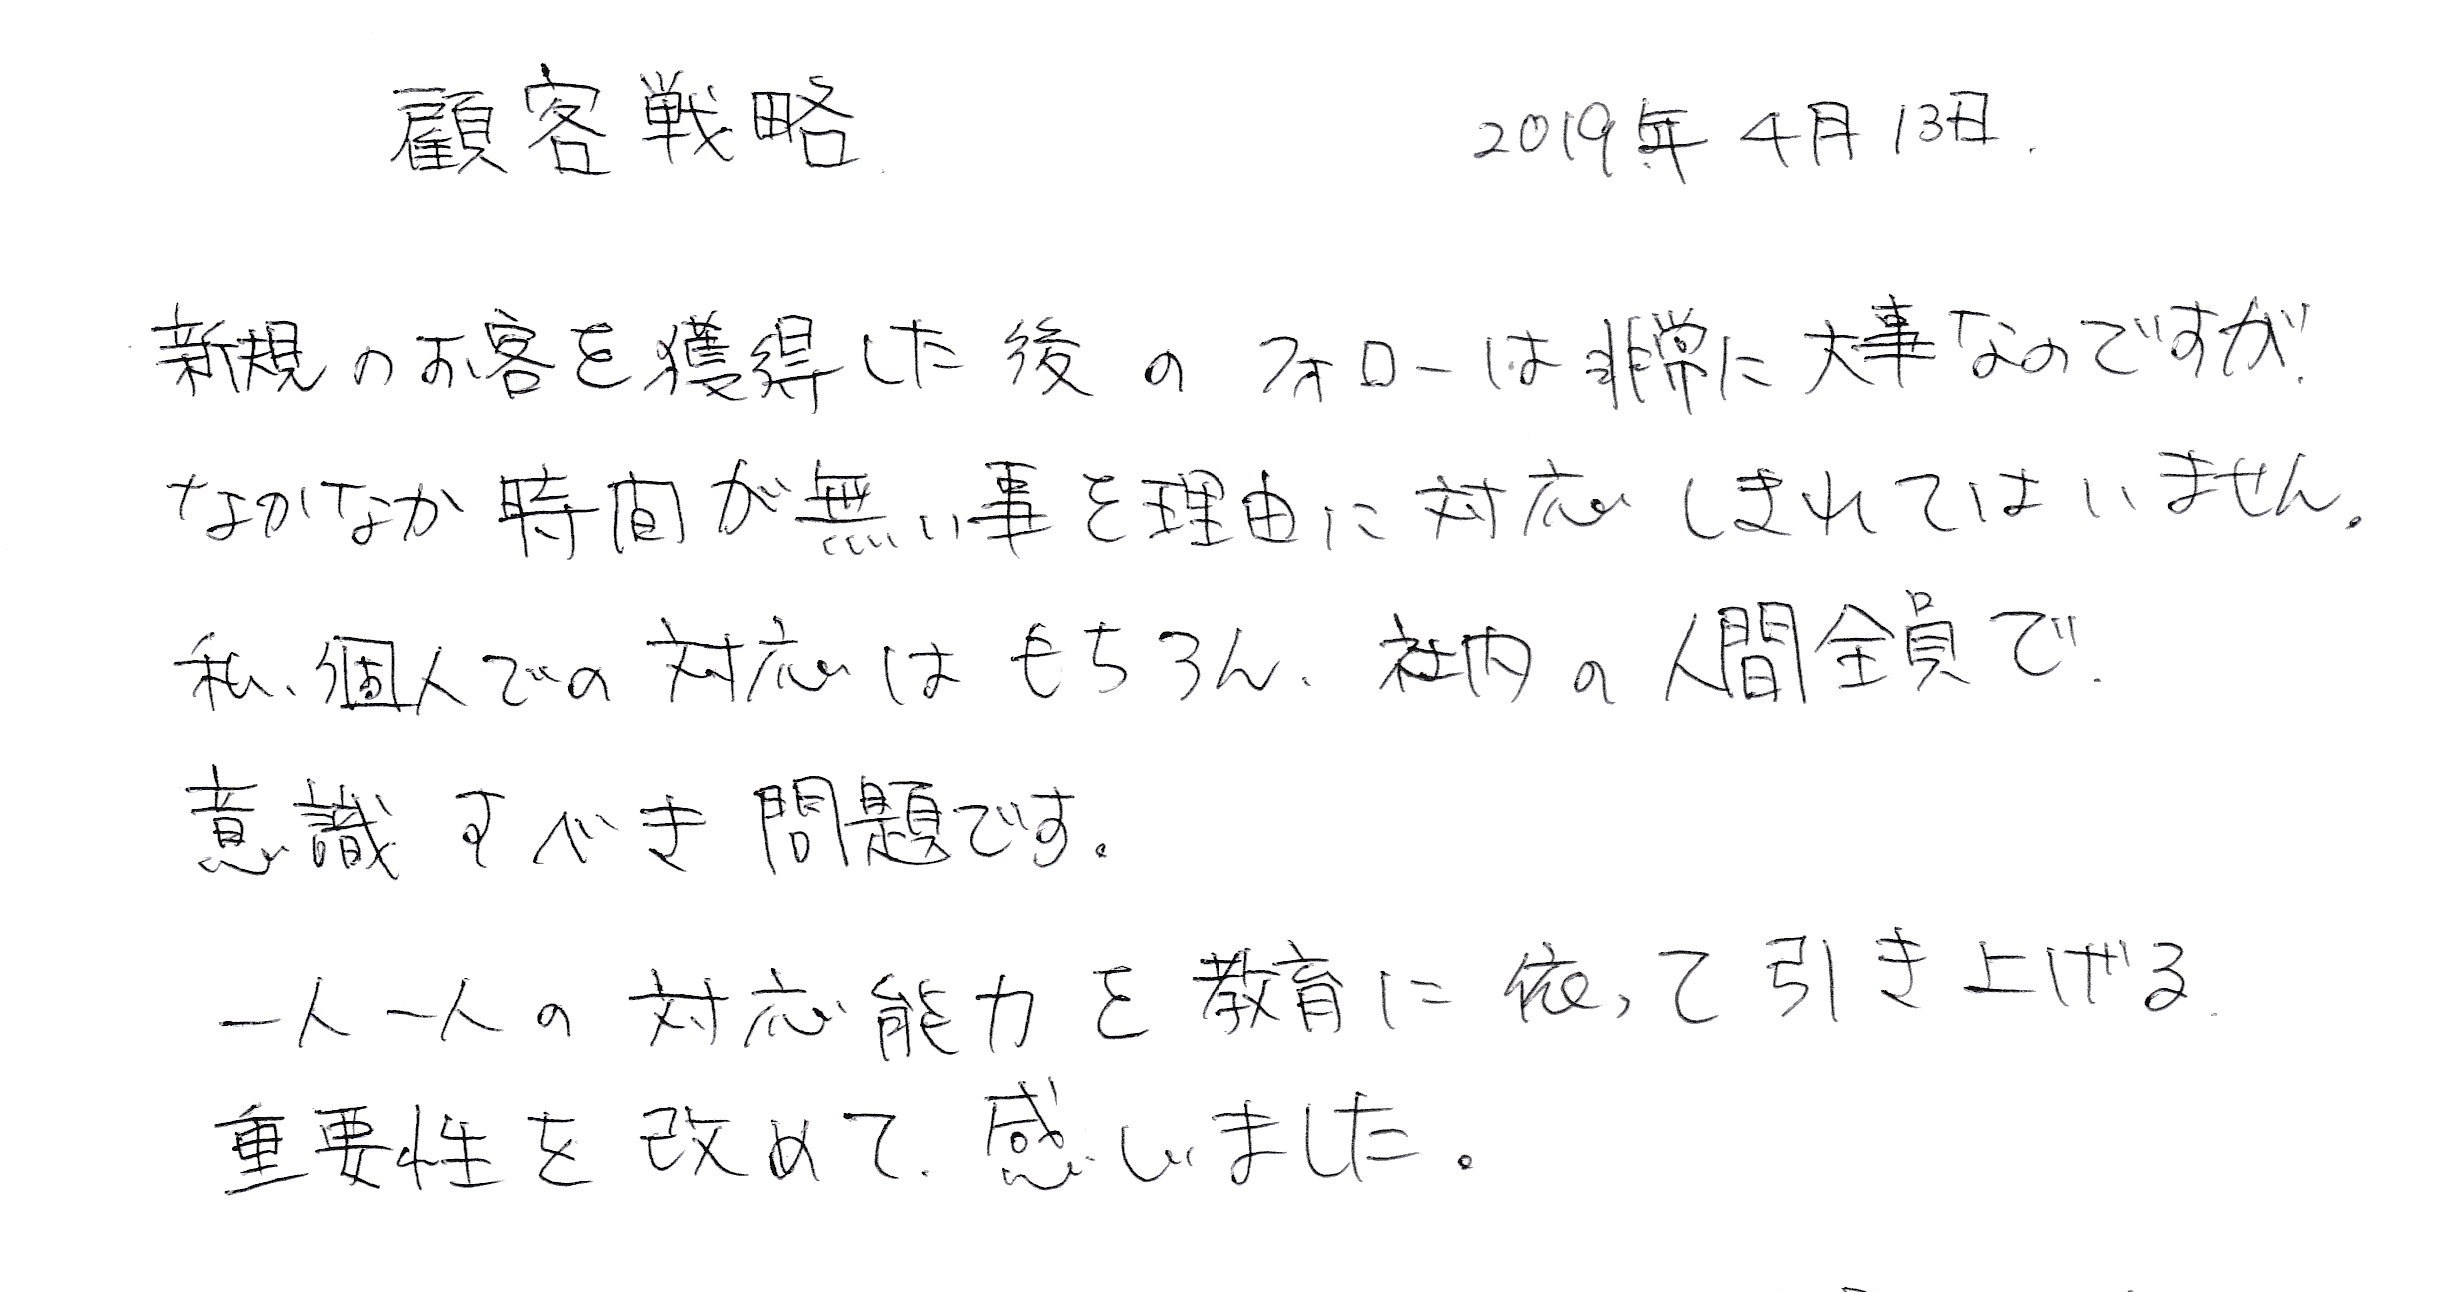 顧客戦略 2019年4月13日.
新規のお客を獲得した後のフォローは非常に大事なのですが、
なかなか時間が無い事を理由に対応しきれてはいません。
私、個人での対応はもちろん、社内の人間全員で、
意識すべき問題です。
一人一人の対応能力を教育に依って引き上げる
重要性を改めて、感じました。